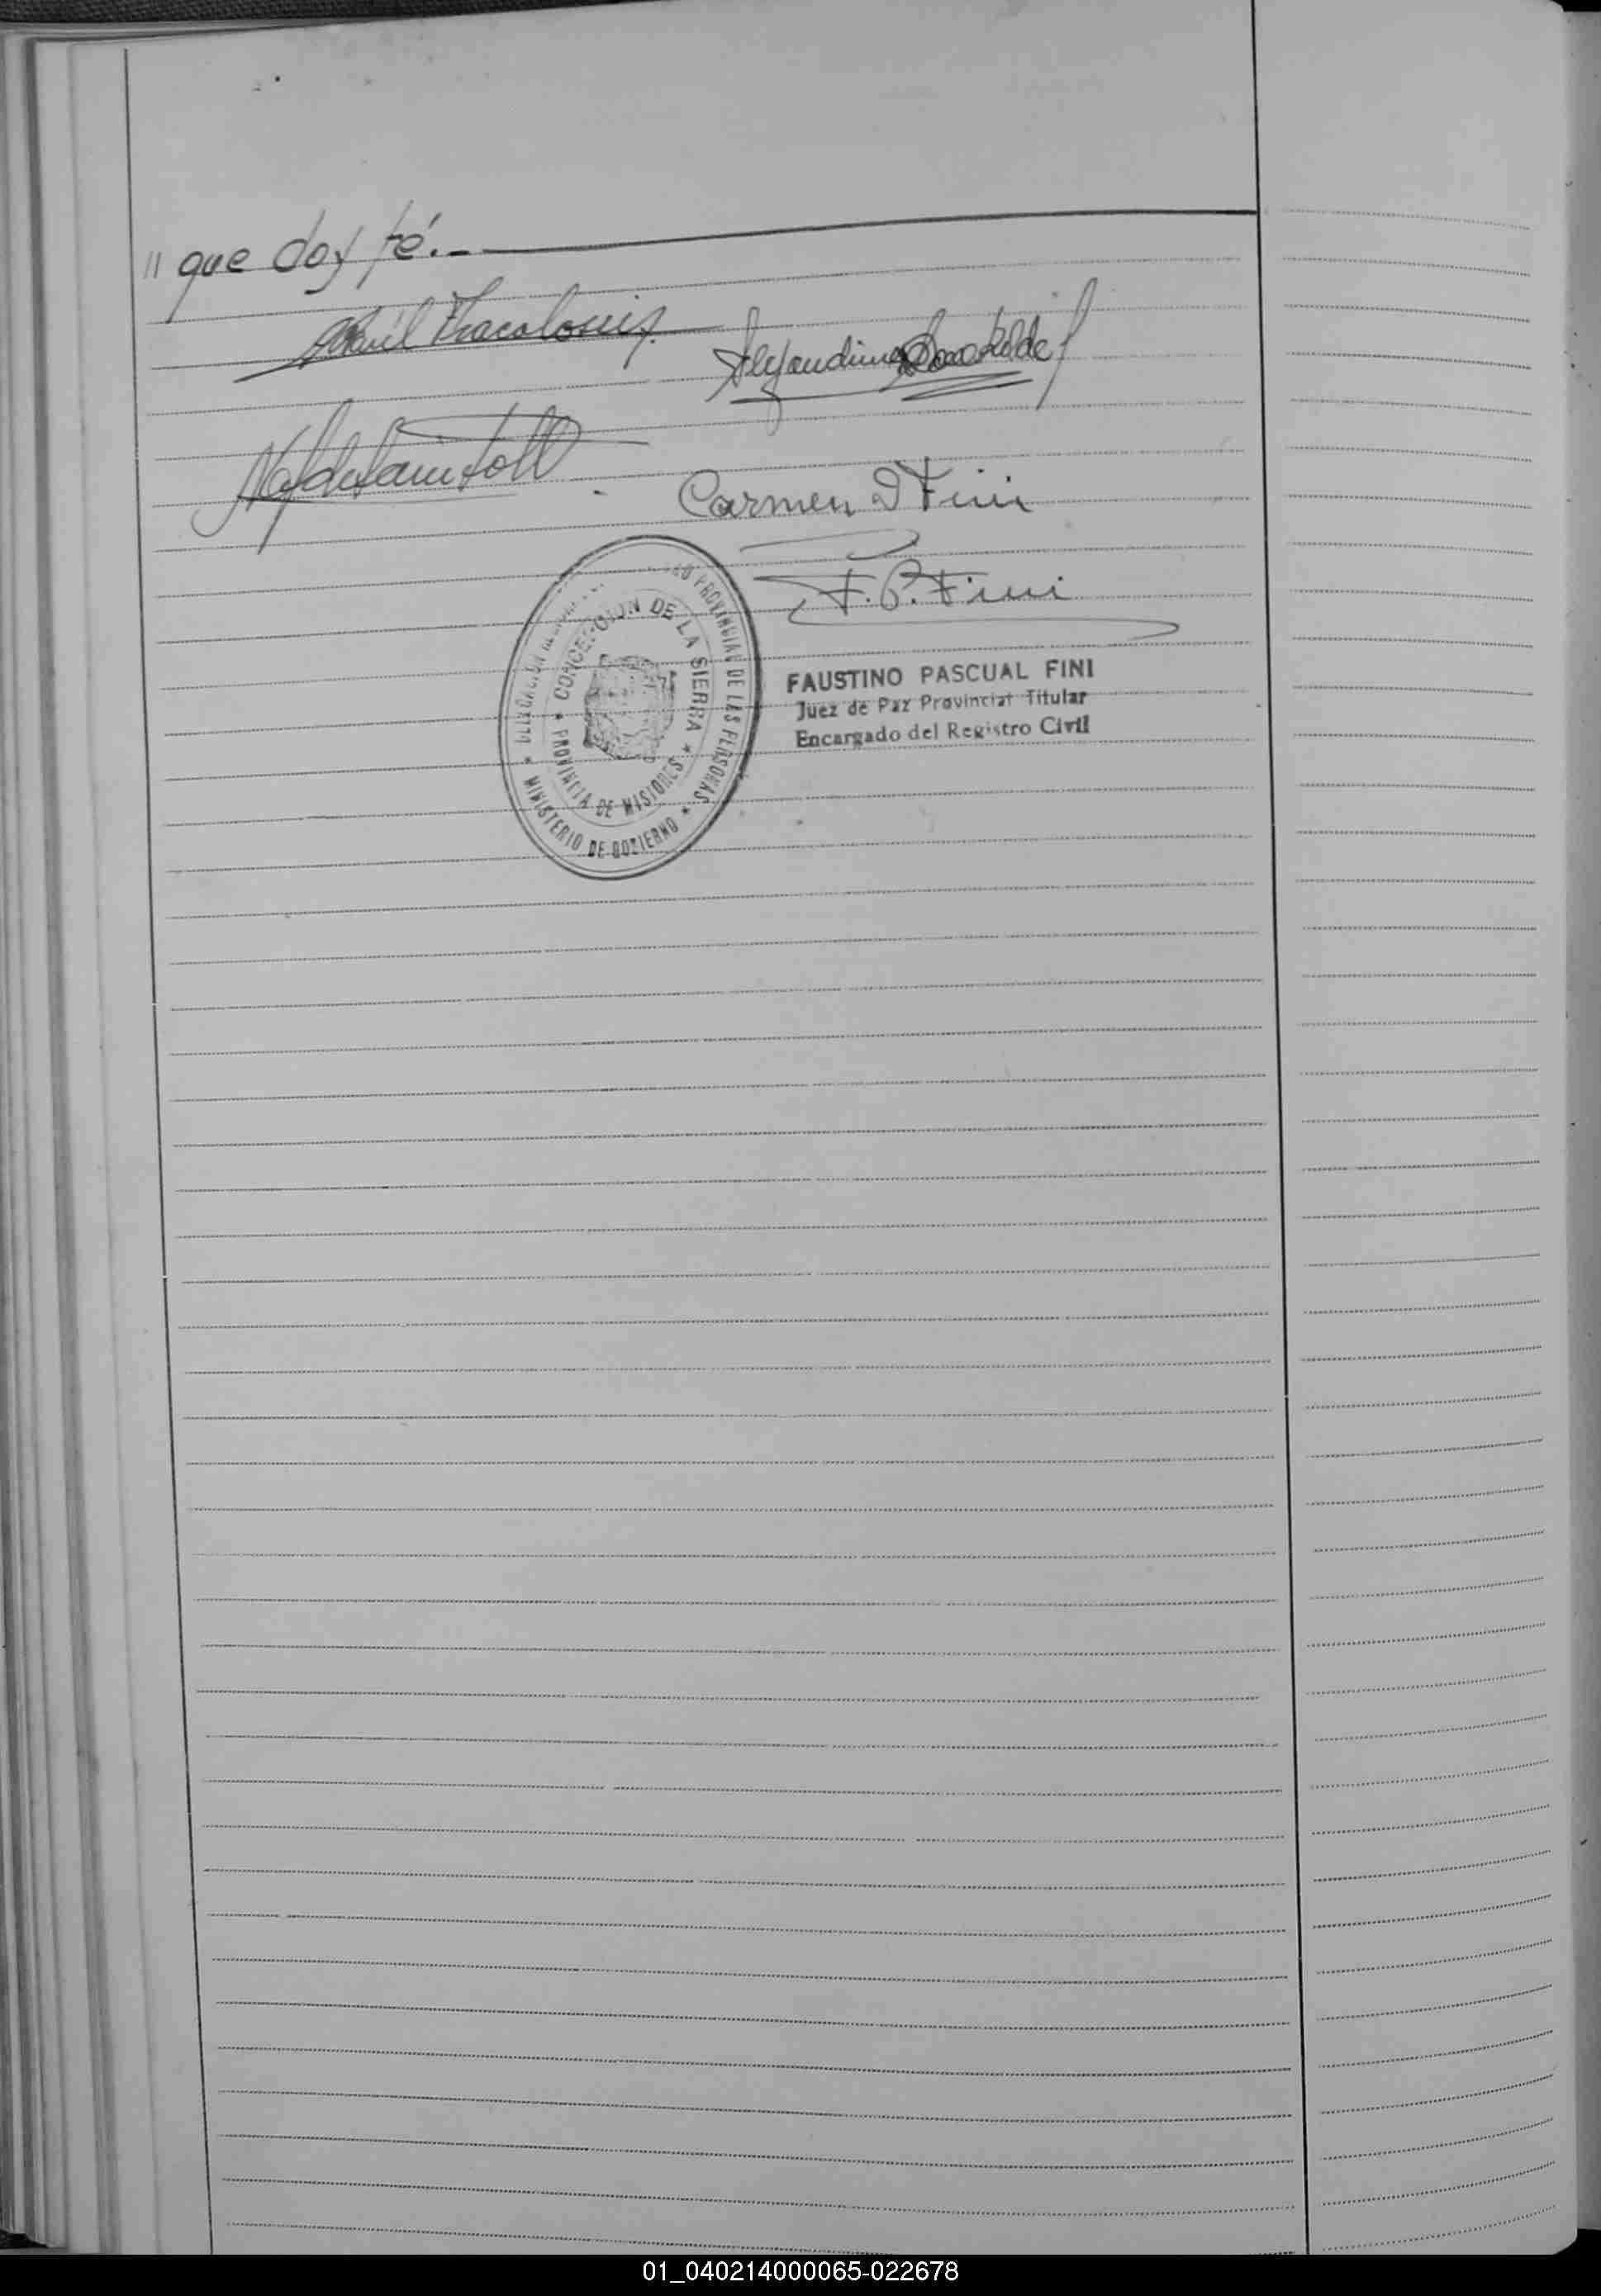 " que doy fé.-
Alejandrina
Carmen D Fini
F. P. Fini
FAUSTINO PASCUAL FINI
Juez de Paz Provincial Titular
Encargado del Registro Civil
PROVINCIAL DE LAS PERSONAS
★ MINISTERIO DE GOBIERNO ★
CONCEPCION DE LA SIERRA
★ PROVINCIA DE MISIONES ★
01_040214000065-022678